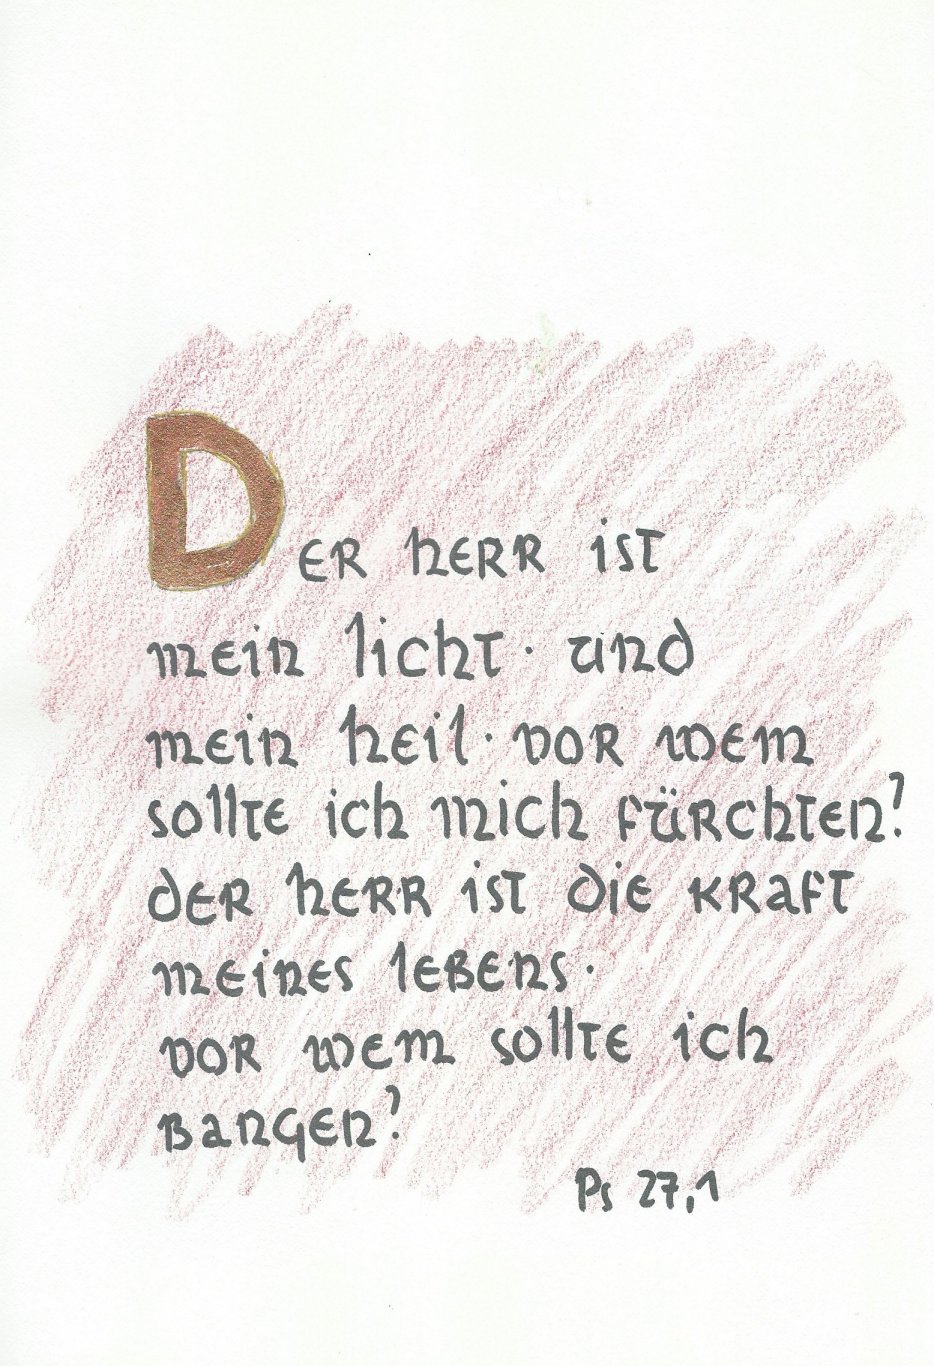 Der herr ist
mein licht · und
mein heil · vor wem
sollte ich mich fürchten?
der herr ist die kraft
meines lebens ·
vor wem sollte ich
bangen?
Ps 27,1